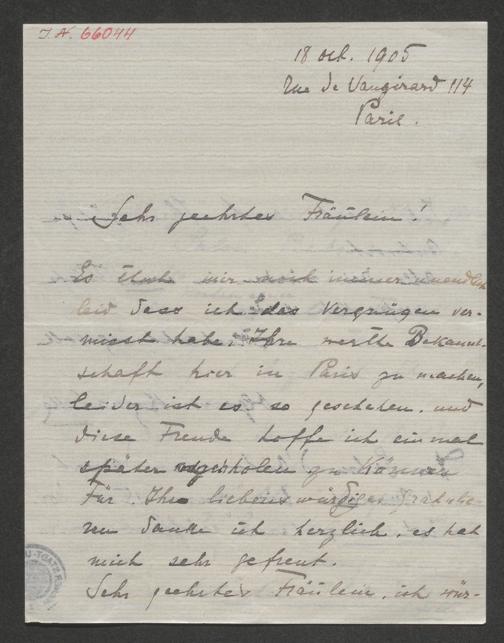 I.N. 66044
18 oct. 1905
Rue de Vaugirard 114
Paris.
Sehr geehrtes Fräulein!
Es thut mir noch immer unendlich
leid dass ich das Vergnügen ver-
misst habe, Ihre werthe Bekannt-
schaft hier in Paris zu machen,
leider ist es so geschehen. und
diese Freude hoffe ich einmal
später nachholen zu können
Für Ihre liebenswürdige
danke ich herzlich, es hat
mich sehr gefreut.
Sehr geehrtes Fräulein, ich wür-